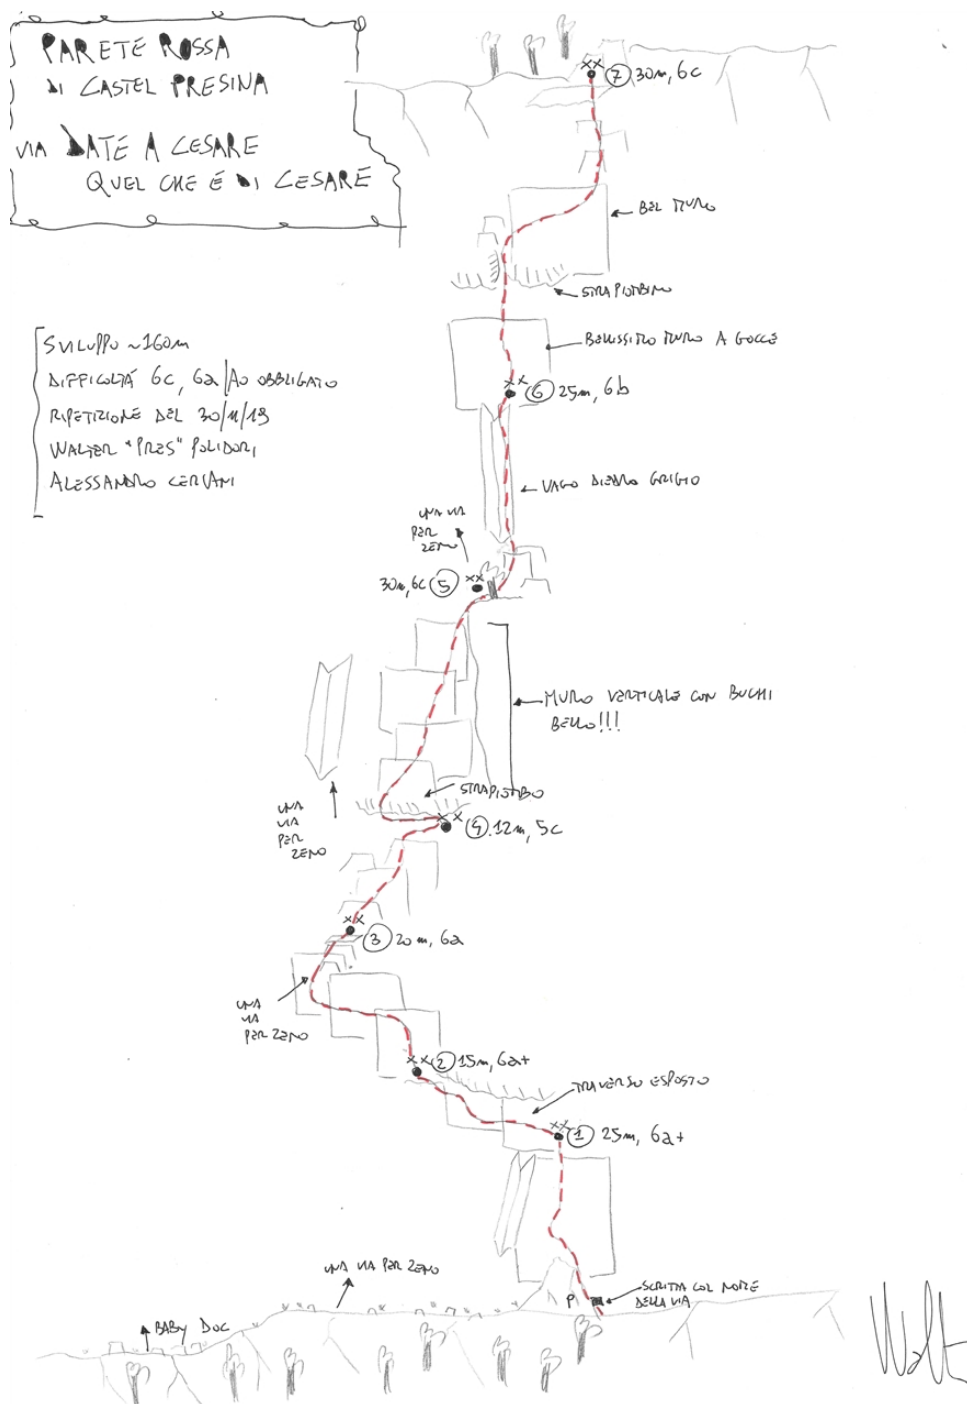 PARETE ROSSA
DI CASTEL PRESINA
VIA DATE A CESARE
QUEL CHE É DI CESARE
7 30m, 6c
BEL MURO
STRAPIOMBINO
SVILUPPO ~160m
DIFFICOLTÁ 6c, 6a/A0 OBBLIGATO
RIPETIZIONE DEL 30/11/19
WALTER "PRES" POLIDORI
ALESSANDRO CERIANI
BELLISSIMO MURO A GOCCE
6 25m, 6b
VAGO DIEDRO GRIGIO
UNA VIA
PER
ZENO
30m, 6c 5
MURO VERTICALE CON BUCHI
BELLO!!!
STRAPIOMBO
UNA
VIA
PER
ZENO
4 12m, 5c
3 20m, 6a
UNA
VIA
PER ZENO
2 15m, 6a+
TRAVERSO ESPOSTO
1 25m, 6a+
UNA VIA PER ZENO
SCRITTA COL NOME
DELLA VIA
P
BABY DOC
Walt